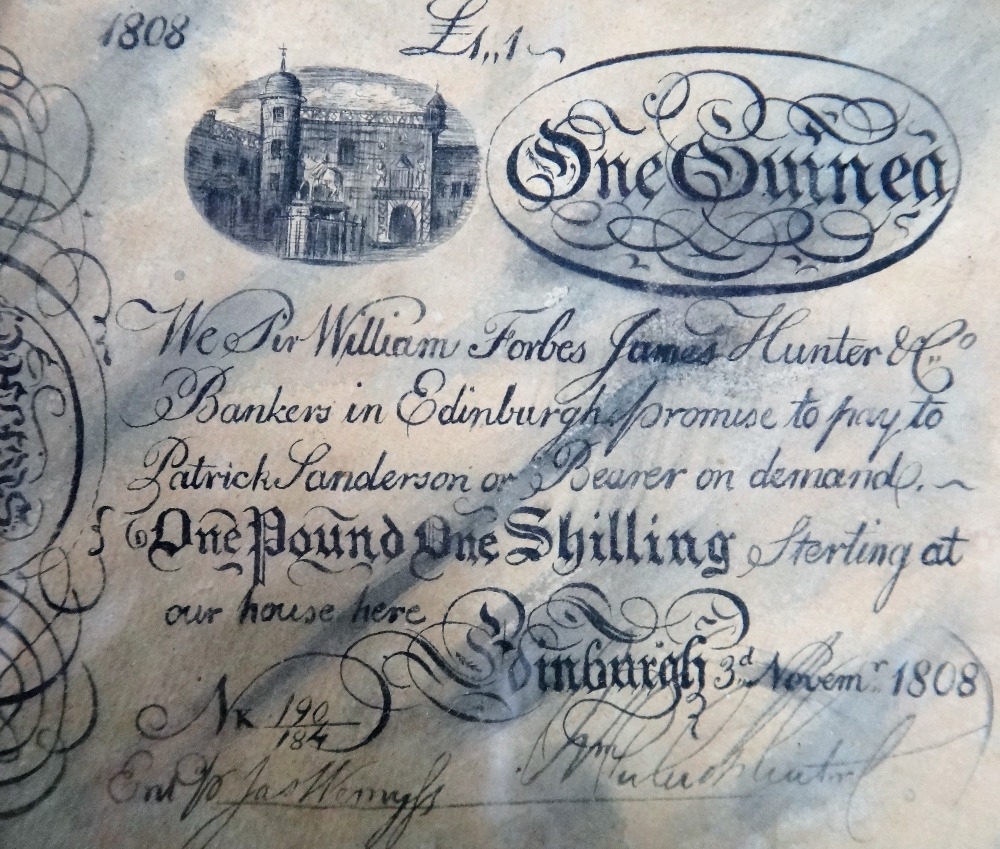 1808 £1,,1
One Guinea
We Sir William Forbes James Hunter & Co
Bankers in Edinburgh, promise to pay to
Patrick Sanderson or Bearer on demand.
One Pound One Shilling Sterling at
our house here
Edinburgh 3d Novemr 1808
No K 190/184
Ent p Jas Wemyss